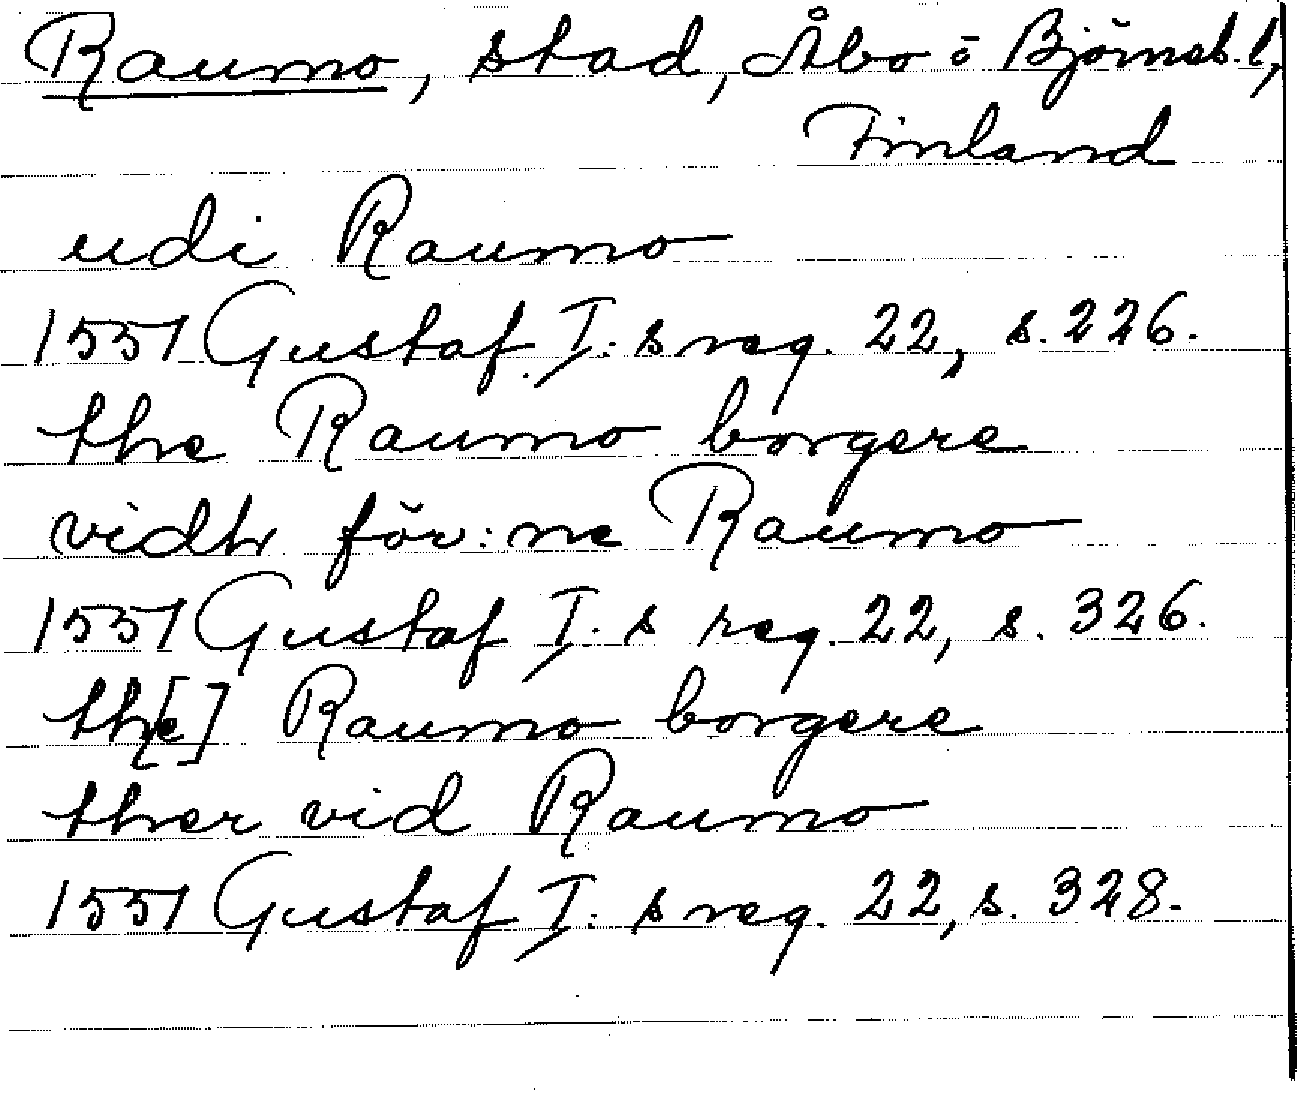 Raumo, stad, Åbo o Björneb. l,
Finland
udi Raumo
1551 Gustaf I: s reg. 22, s. 226.
the Raumo borgere
vidh för:ne Raumo
1551 Gustaf I. s reg. 22, s. 326.
th[e] Raumo borgere
ther vid Raumo
1551 Gustaf I: s reg. 22, s. 328.